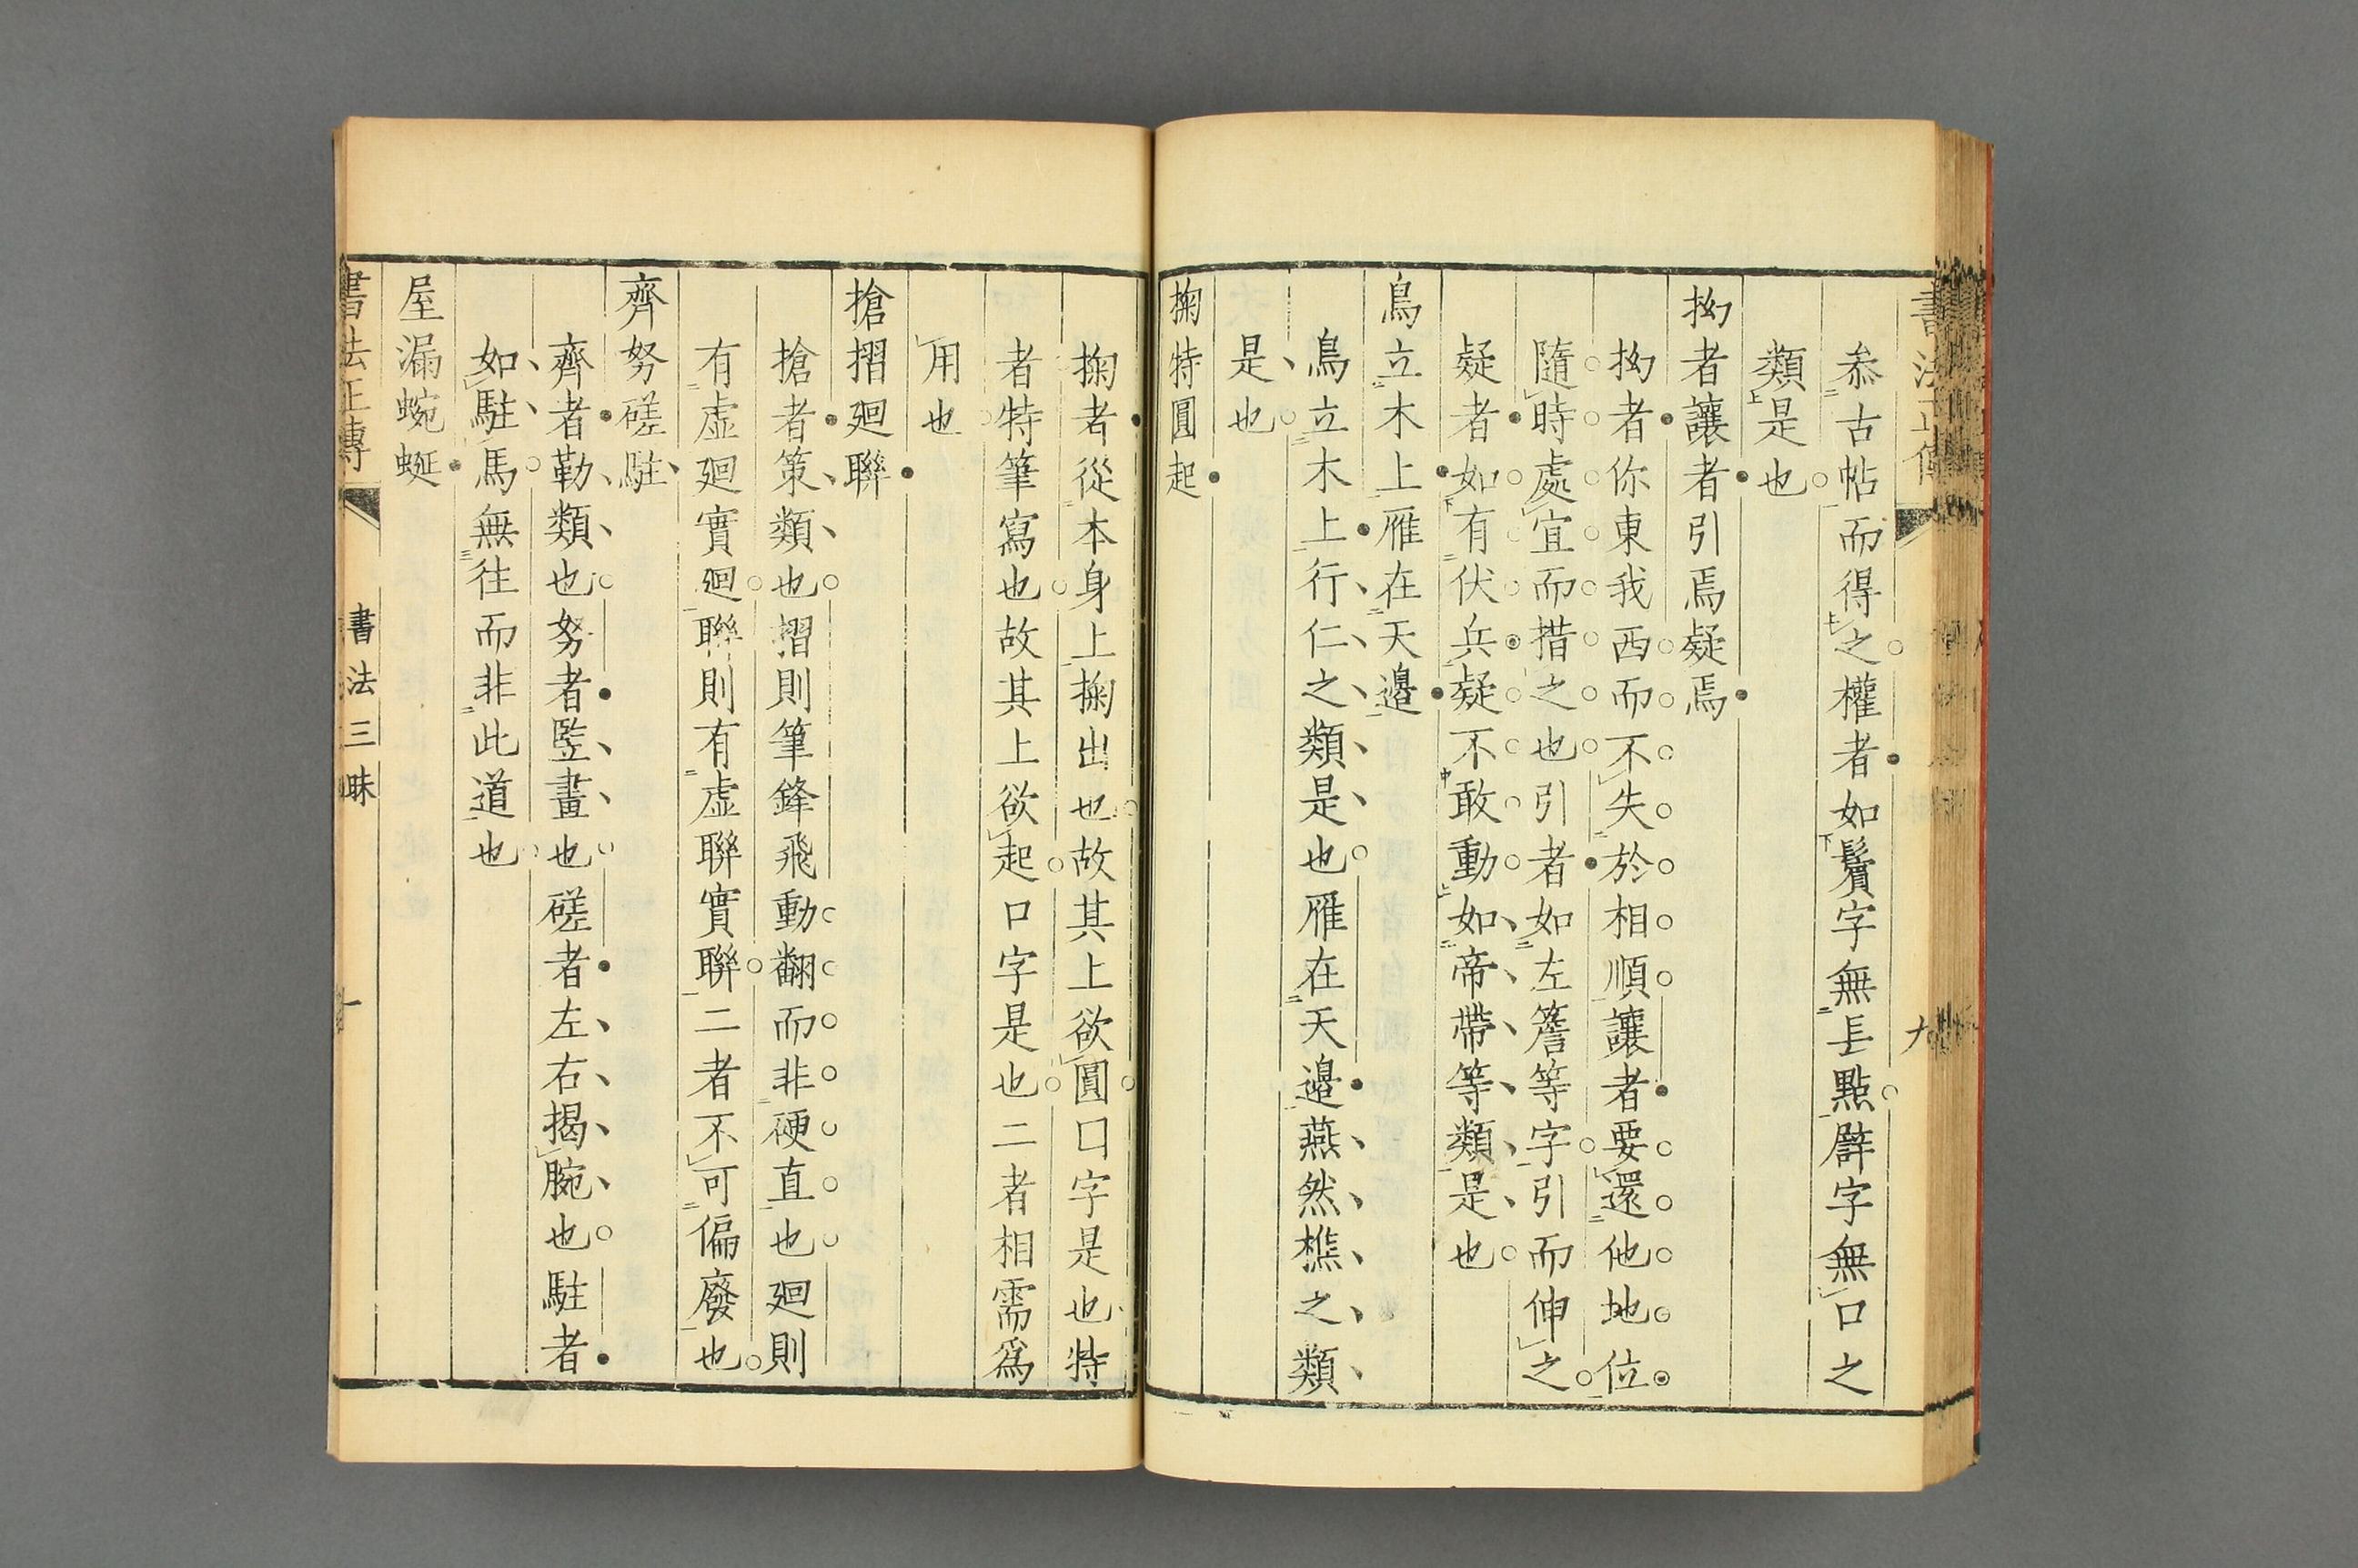 叅古帖而得之權者如鬢字無長點辟字無口之
類是也
拗者讓者引焉疑焉
拗者你東我西而不失於相順讓者要還他地位
隨時處宜而措之也引者如左簷等字引而伸之
疑者如有伏兵疑不敢動如帝帶等類是也
鳥立木上雁在天邉
鳥立木上行仁之類是也雁在天邉燕然樵之類
是也
掬特圓起
掬者從本身上掬出也故其上欲圓口字是也特
者特筆寫也故其上欲起口字是也二者相需爲
用也
搶摺廻聯
搶者策類也摺則筆鋒飛動翻而非硬直也廻則
有虛廻實廻聯則有虛聯實聯二者不可偏廢也
齊努磋駐
齊者勒類也努者竪畫也磋者左右揭腕也駐者
如駐馬無徃而非此道也
屋漏蜿蜒
書法正傳
書法三昧
十
書法正傳
九